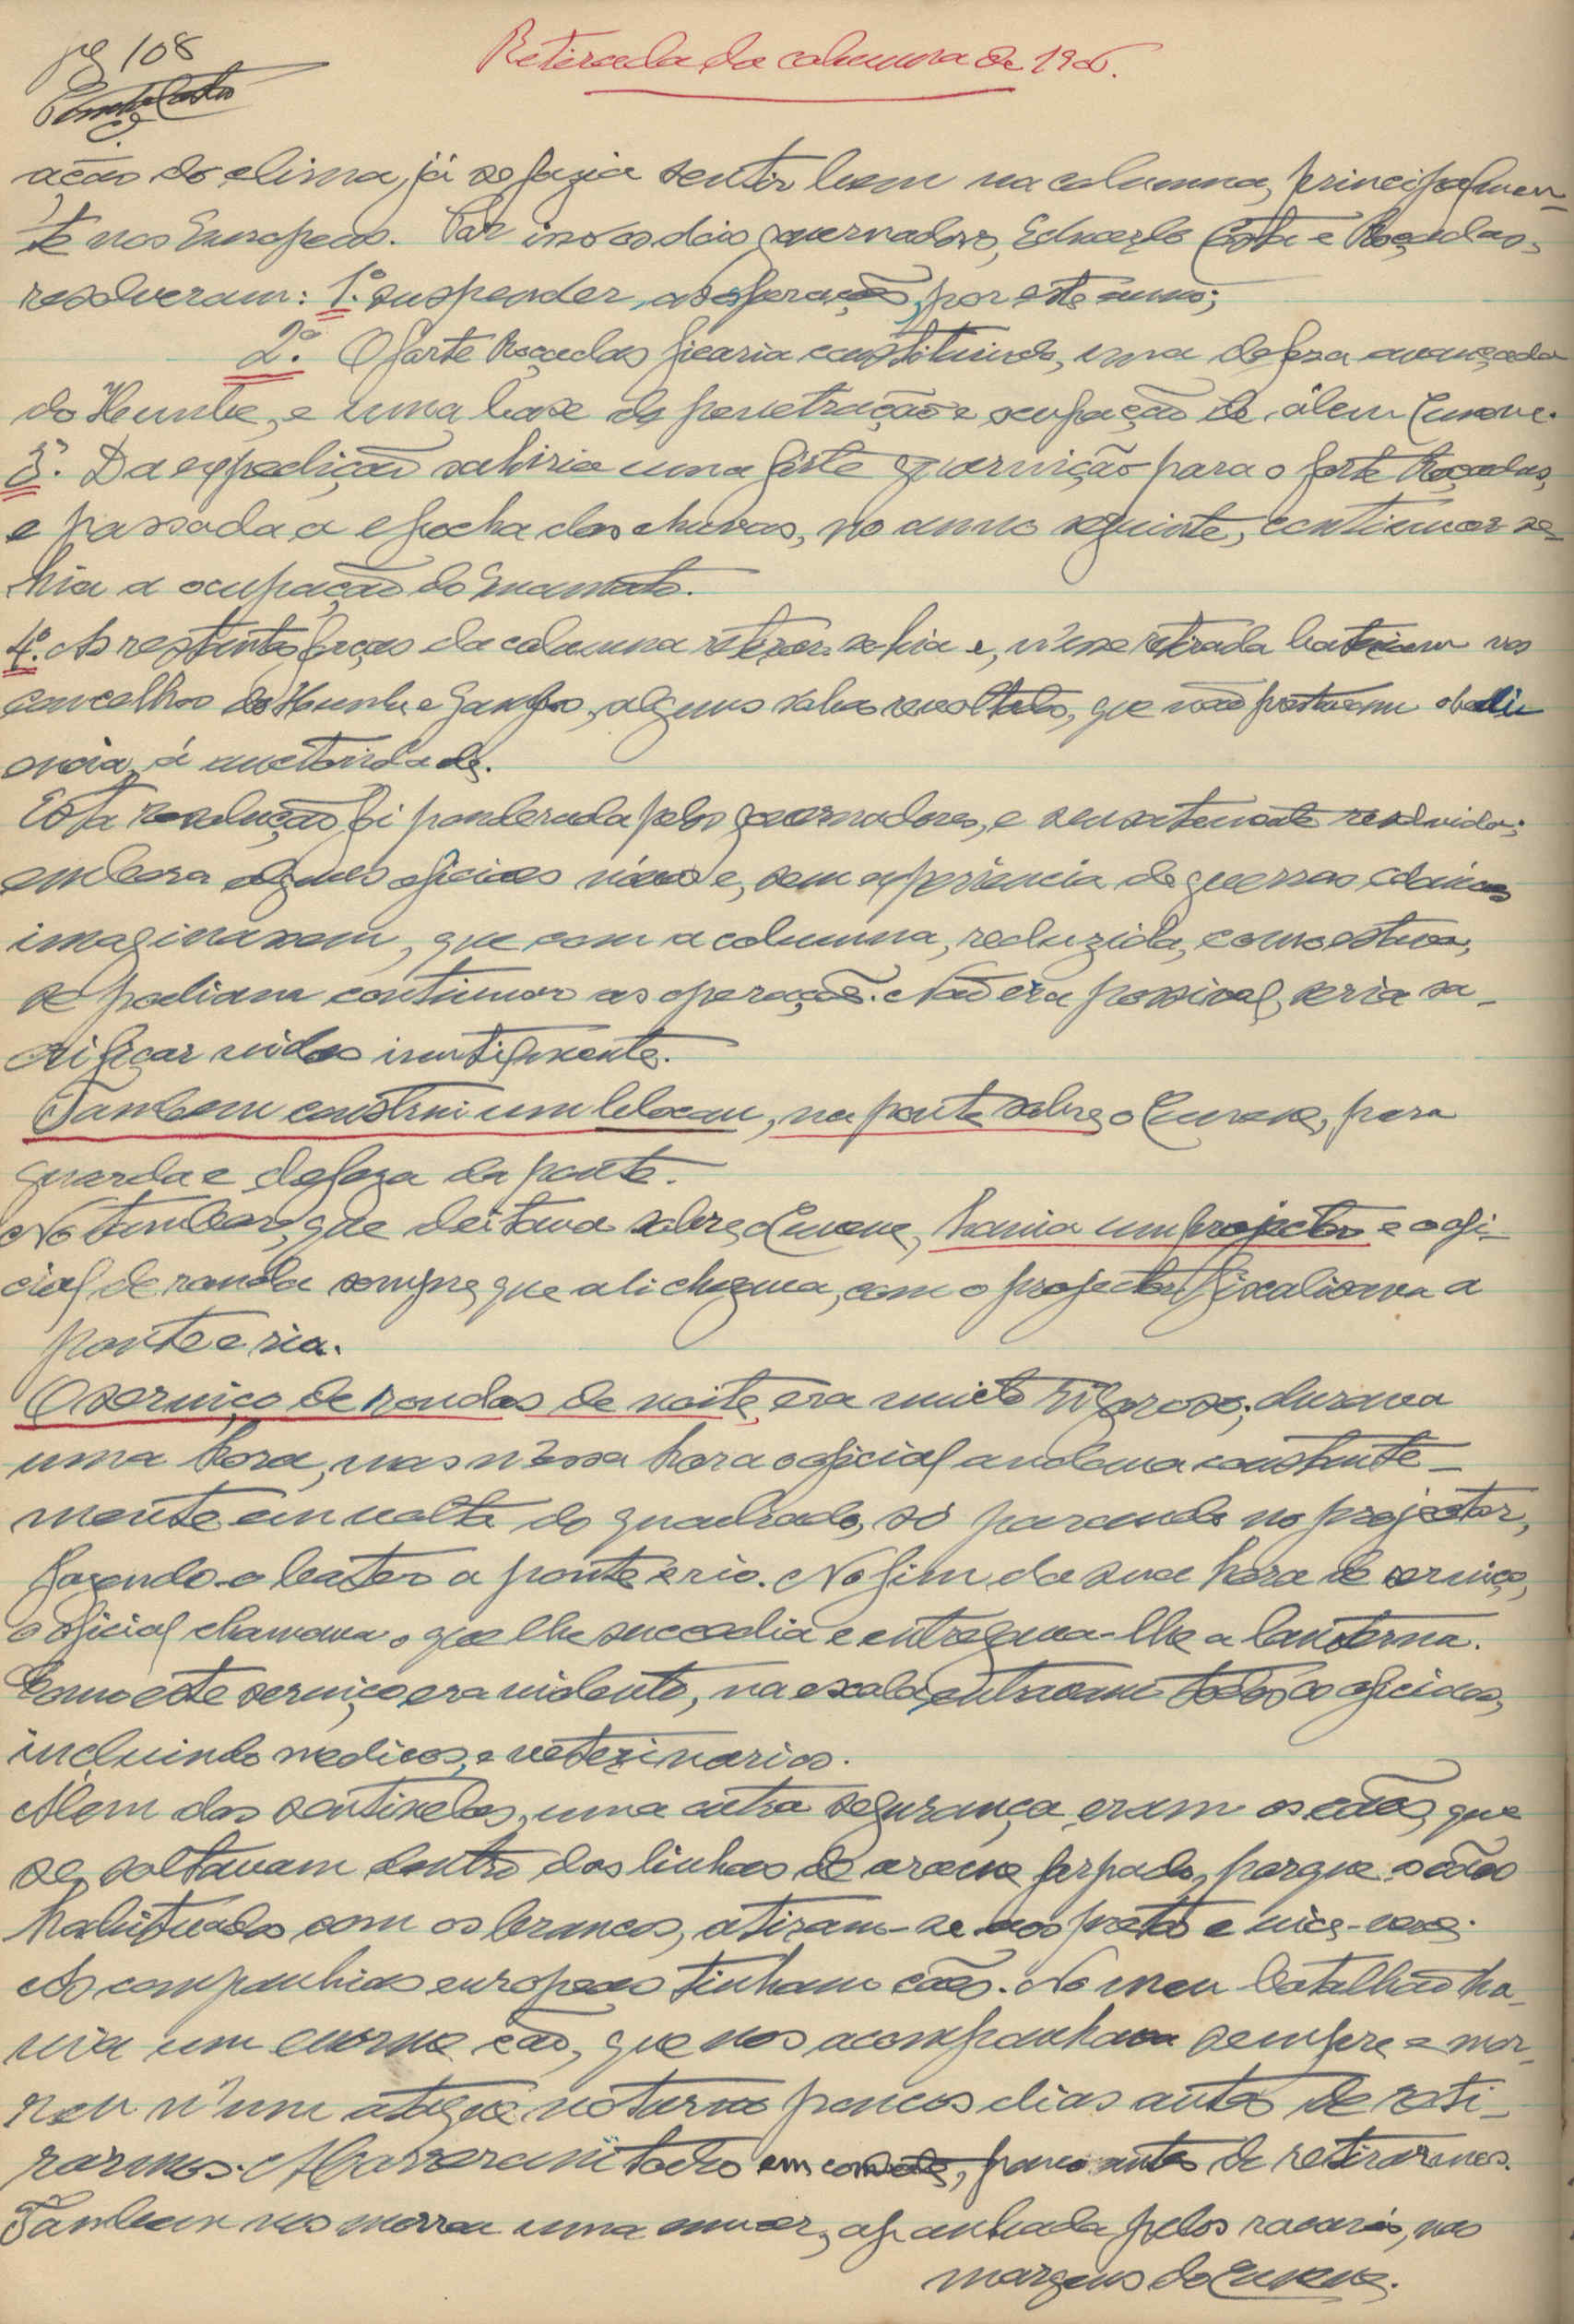 pg 108
Retirada da columna de 1906.
ação do clima, já se fazia sentir bem na columna, principalmen-
te nos Europeos. Por isso os dois governadores, Eduardo Costa e Roçadas,
resolveram: 1.º suspender, as operações, por este anno;
2.º O forte Roçadas ficaria constituindo, uma defeza avançada
do Humbe, e uma base de penetração e ocupação de álem Cunene.
3.º Da expedição sahiria uma forte guarnição para o forte Roçadas,
e passada a epocha das chuvas, no anno seguinte, continuar se-
hia a ocupação do Cuamato.
4.º As restantes forças da columna retirar-se-hia e, n'essa retirada bateriam nos
concelhos do Humbe e Gambos, alguns sobas revoltados, que não prestavam obedi
encia, á auctoridade.
Esta resolução foi ponderada pelos governadores, e sensatamente resolvida;
embora alguns oficiaes novos e, sem experiencia de guerras coloniaes
imaginassem, que com a columna, reduzida, como estava,
se podiam continuar as operações. Não era possivel, seria sa-
crificar vidas inutilmente.
Tambem construi um blocau, na ponte sobre o Cunene, para
guarda e defeza da ponte.
No tambor, que deitava sobre o Cunene, havia um projector e o ofi-
cial de ronda sempre que ali chegava, com o projector fiscalisava a
ponte e rio.
O serviço de rondas de noite, era muito rigoroso; durava
uma hora, mas n'essa hora o oficial andava constante-
mente em volta do quadrado, só parando no projector,
fazendo-o bater a ponte e rio. No fim da sua hora de serviço,
o oficial chamava o que lhe succedia e entregava-lhe a lanterna.
Como este serviço era violento, na escala entravam todos os oficiaes,
incluindo medicos, e veterinarios.
Alem das sentinelas, uma outra segurança, eram os cães, que
se soltavam dentro das linhas de arame farpado, porque os cães
habituados com os brancos, atiram-se aos pretos e vice-versa.
As companhias europeas tinham cães. No meu batalhão ha-
via um enorme cão, que nos acompanhava sempre e mor-
reu n'um ataque noturno poucos dias antes de reti-
rarmos. Morreram todos em combate, pouco antes de retirarmos.
Tambem nos morreu uma mulher, apanhada pelos jacarés, nas
margens do Cunene.